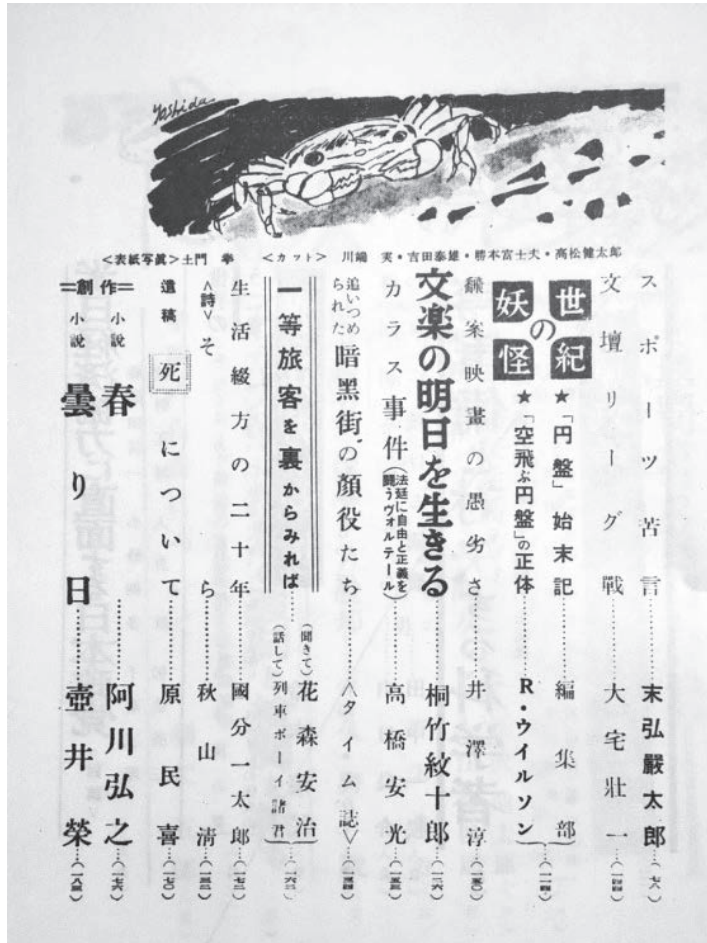 Yoshida
<表紙写眞>土門 拳 <カット> 川端 実・吉田泰雄・勝本富士夫・高松健太郎
スポーツ苦言……末弘嚴太郎…(七八)
文壇リーグ戰……大宅壯一…
世紀の妖怪
★「円盤」始末記……編集部
★「空飛ぶ円盤」の正体……R・ウイルソン
飜案映畫の愚劣さ……井澤淳…
文楽の明日を生きる……桐竹紋十郎…
カラス事件(法廷に自由と正義を闘うヴォルテール)……高橋安光…
追いつめられた暗黒街の顔役たち……<タイム誌>…
一等旅客を裏からみれば……(聞きて)花森安治 (話して)列車ボーイ諸君
生活綴方の二十年……國分一太郎…
<詩>そら……秋山清…
遺稿 死について……原民喜…
=創作=
小説 春……阿川弘之…
小説 曇り日……壺井榮…